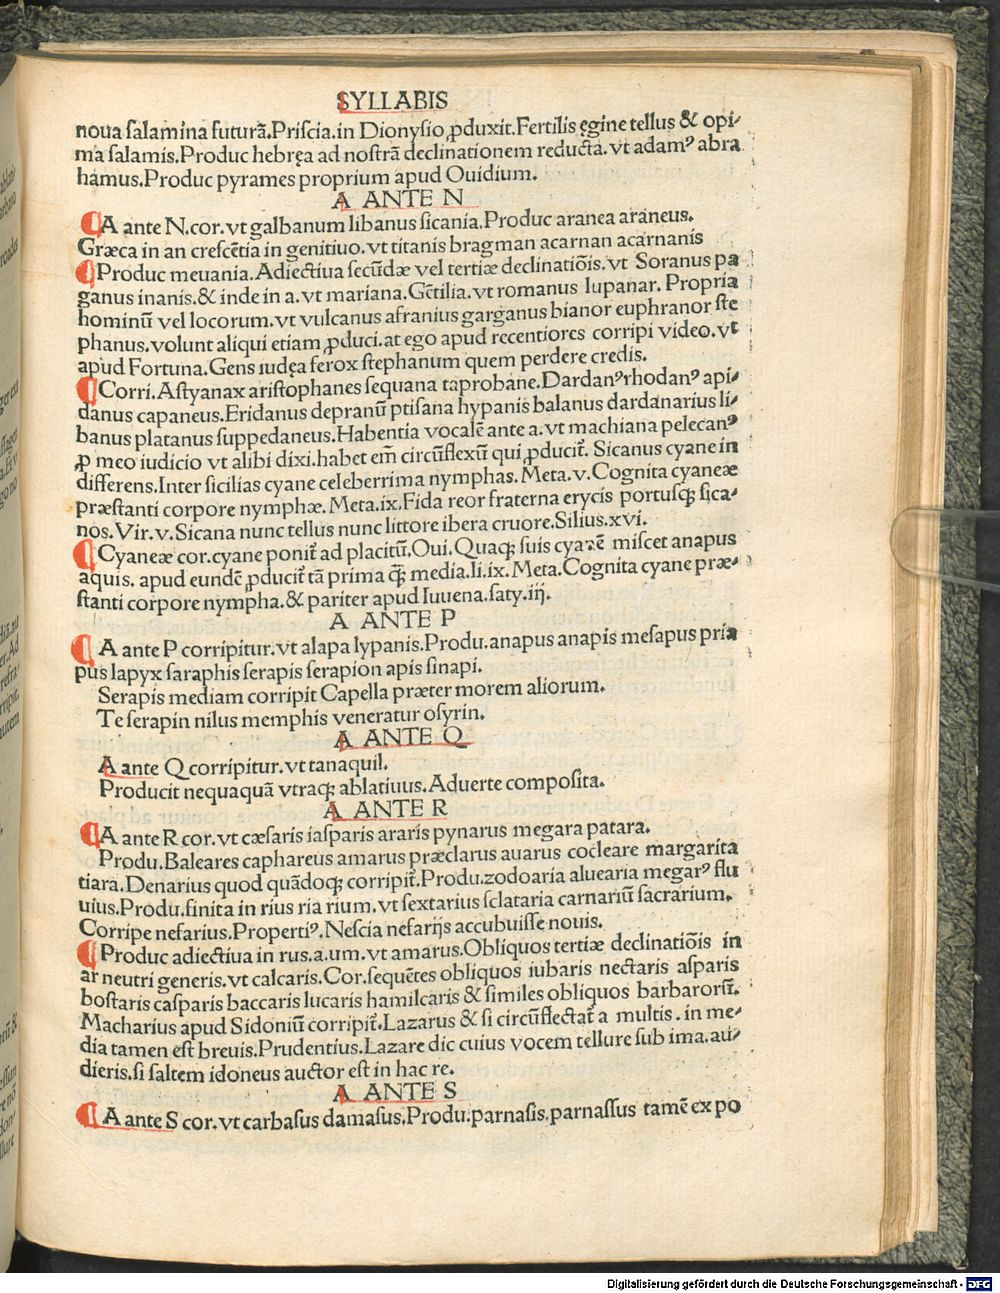 SYLLABIS
noua salamina futurā.Priscia.in Dionysio ꝓduxit.Fertilis ęgine tellus & opi⸗
ma salamis.Produc hebręa ad nostrā declinationem reducta.vt adamꝰ abra
hamus.Produc pyrames proprium apud Ouidium.
A ANTE N
¶A ante N.cor.vt galbanum libanus sicania.Produc aranea araneus.
Græca in an crescētia in genitiuo.vt titanis bragman acarnan acarnanis
¶Produc meuania.Adiectiua secūdæ vel tertiæ declinatiōis.vt Soranus pa
ganus inanis.& inde in a.vt mariana.Gētilia.vt romanus lupanar. Propria
hominū vel locorum.vt vulcanus afranius garganus bianor euphranor ste
phanus.volunt aliqui etiam ꝓduci.at ego apud recentiores corripi video.vt
apud Fortuna.Gens iudęa ferox stephanum quem perdere credis.
¶Corri.Astyanax aristophanes sequana taprobane.Dardanꝰrhodanꝰ api⸗
danus capaneus.Eridanus depranū ptisana hypanis balanus dardanarius li⸗
banus platanus suppedaneus.Habentia vocalē ante a.vt machiana pelecanꝰ
ꝓ meo iudicio vt alibi dixi.habet em̄ circūflexū qui ꝓducit̄. Sicanus cyane in
differens.Inter sicilias cyane celeberrima nymphas. Meta.v.Cognita cyaneæ
præstanti corpore nymphæ. Meta.ix.Fida reor fraterna erycis portusqꝫ sica⸗
nos.Vir.v.Sicana nunc tellus nunc littore ibera cruore.Silius.xvi.
¶Cyaneæ cor.cyane ponit̄ ad placitū.Oui.Quaqꝫ suis cyanē miscet anapus
aquis. apud eundē ꝓducit̄ tā prima qꝫ̄ media.li.ix.Meta.Cognita cyane præ⸗
stanti corpore nympha.& pariter apud Iuuena.saty.iij.
A ANTE P
¶A ante P corripitur.vt alapa lypanis.Produ.anapus anapis mesapus pria
pus lapyx saraphis serapis serapion apis sinapi.
Serapis mediam corripit Capella præter morem aliorum.
Te serapin nilus memphis veneratur osyrin.
A ANTE Q
A ante Q corripitur.vt tanaquil.
Producit nequaquā vtraqꝫ ablatiuus.Aduerte composita.
A ANTE R
¶A ante R cor.vt cæsaris iasparis araris pynarus megara patara.
Produ.Baleares caphareus amarus præclarus auarus cocleare margarita
tiara.Denarius quod quādoqꝫ corripit̄.Produ.zodoaria aluearia megarꝰ flu
uius.Produ.finita in rius ria rium.vt sextarius sclataria carnariū sacrarium.
Corripe nefarius.Propertiꝰ.Nescia nefarijs accubuisse nouis.
¶Produc adiectiua in rus.a.um.vt amarus.Obliquos tertiæ declinatiōis in
ar neutri generis.vt calcaris.Cor.sequētes obliquos iubaris nectaris asparis
bostaris casparis baccaris lucaris hamilcaris & similes obliquos barbarorū.
Macharius apud Sidoniū corripit̄.Lazarus & si circūflectat̄ a multis.in me⸗
dia tamen est breuis.Prudentius.Lazare dic cuius vocem tellure sub ima.au⸗
dieris.si saltem idoneus auctor est in hac re.
A ANTE S
¶A ante S cor.vt carbasus damasus.Produ.parnasis.parnassus tamē ex po
Digitalisierung gefördert durch die Deutsche Forschungsgemeinschaft - DFG